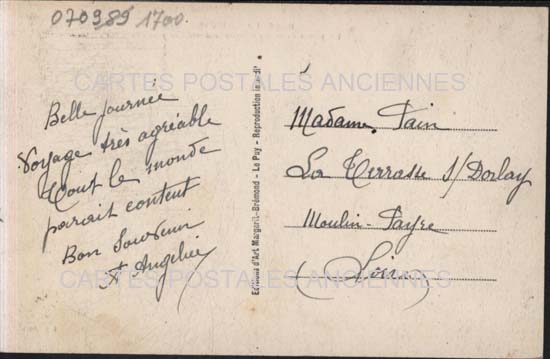 070989 1700.
CARTES POSTALES ANCIENNES
Belle journée
Voyage très agréable
Tout le monde
parait content
Bon Souvenir
Angelie
Editions d'Art Margerit-Brémond - Le Puy - Reproduction interdi
Madame Fain
La Terrasse s/Dorlay
Moulin-Payre
(Loire)
CARTES POSTALES ANCIENNES